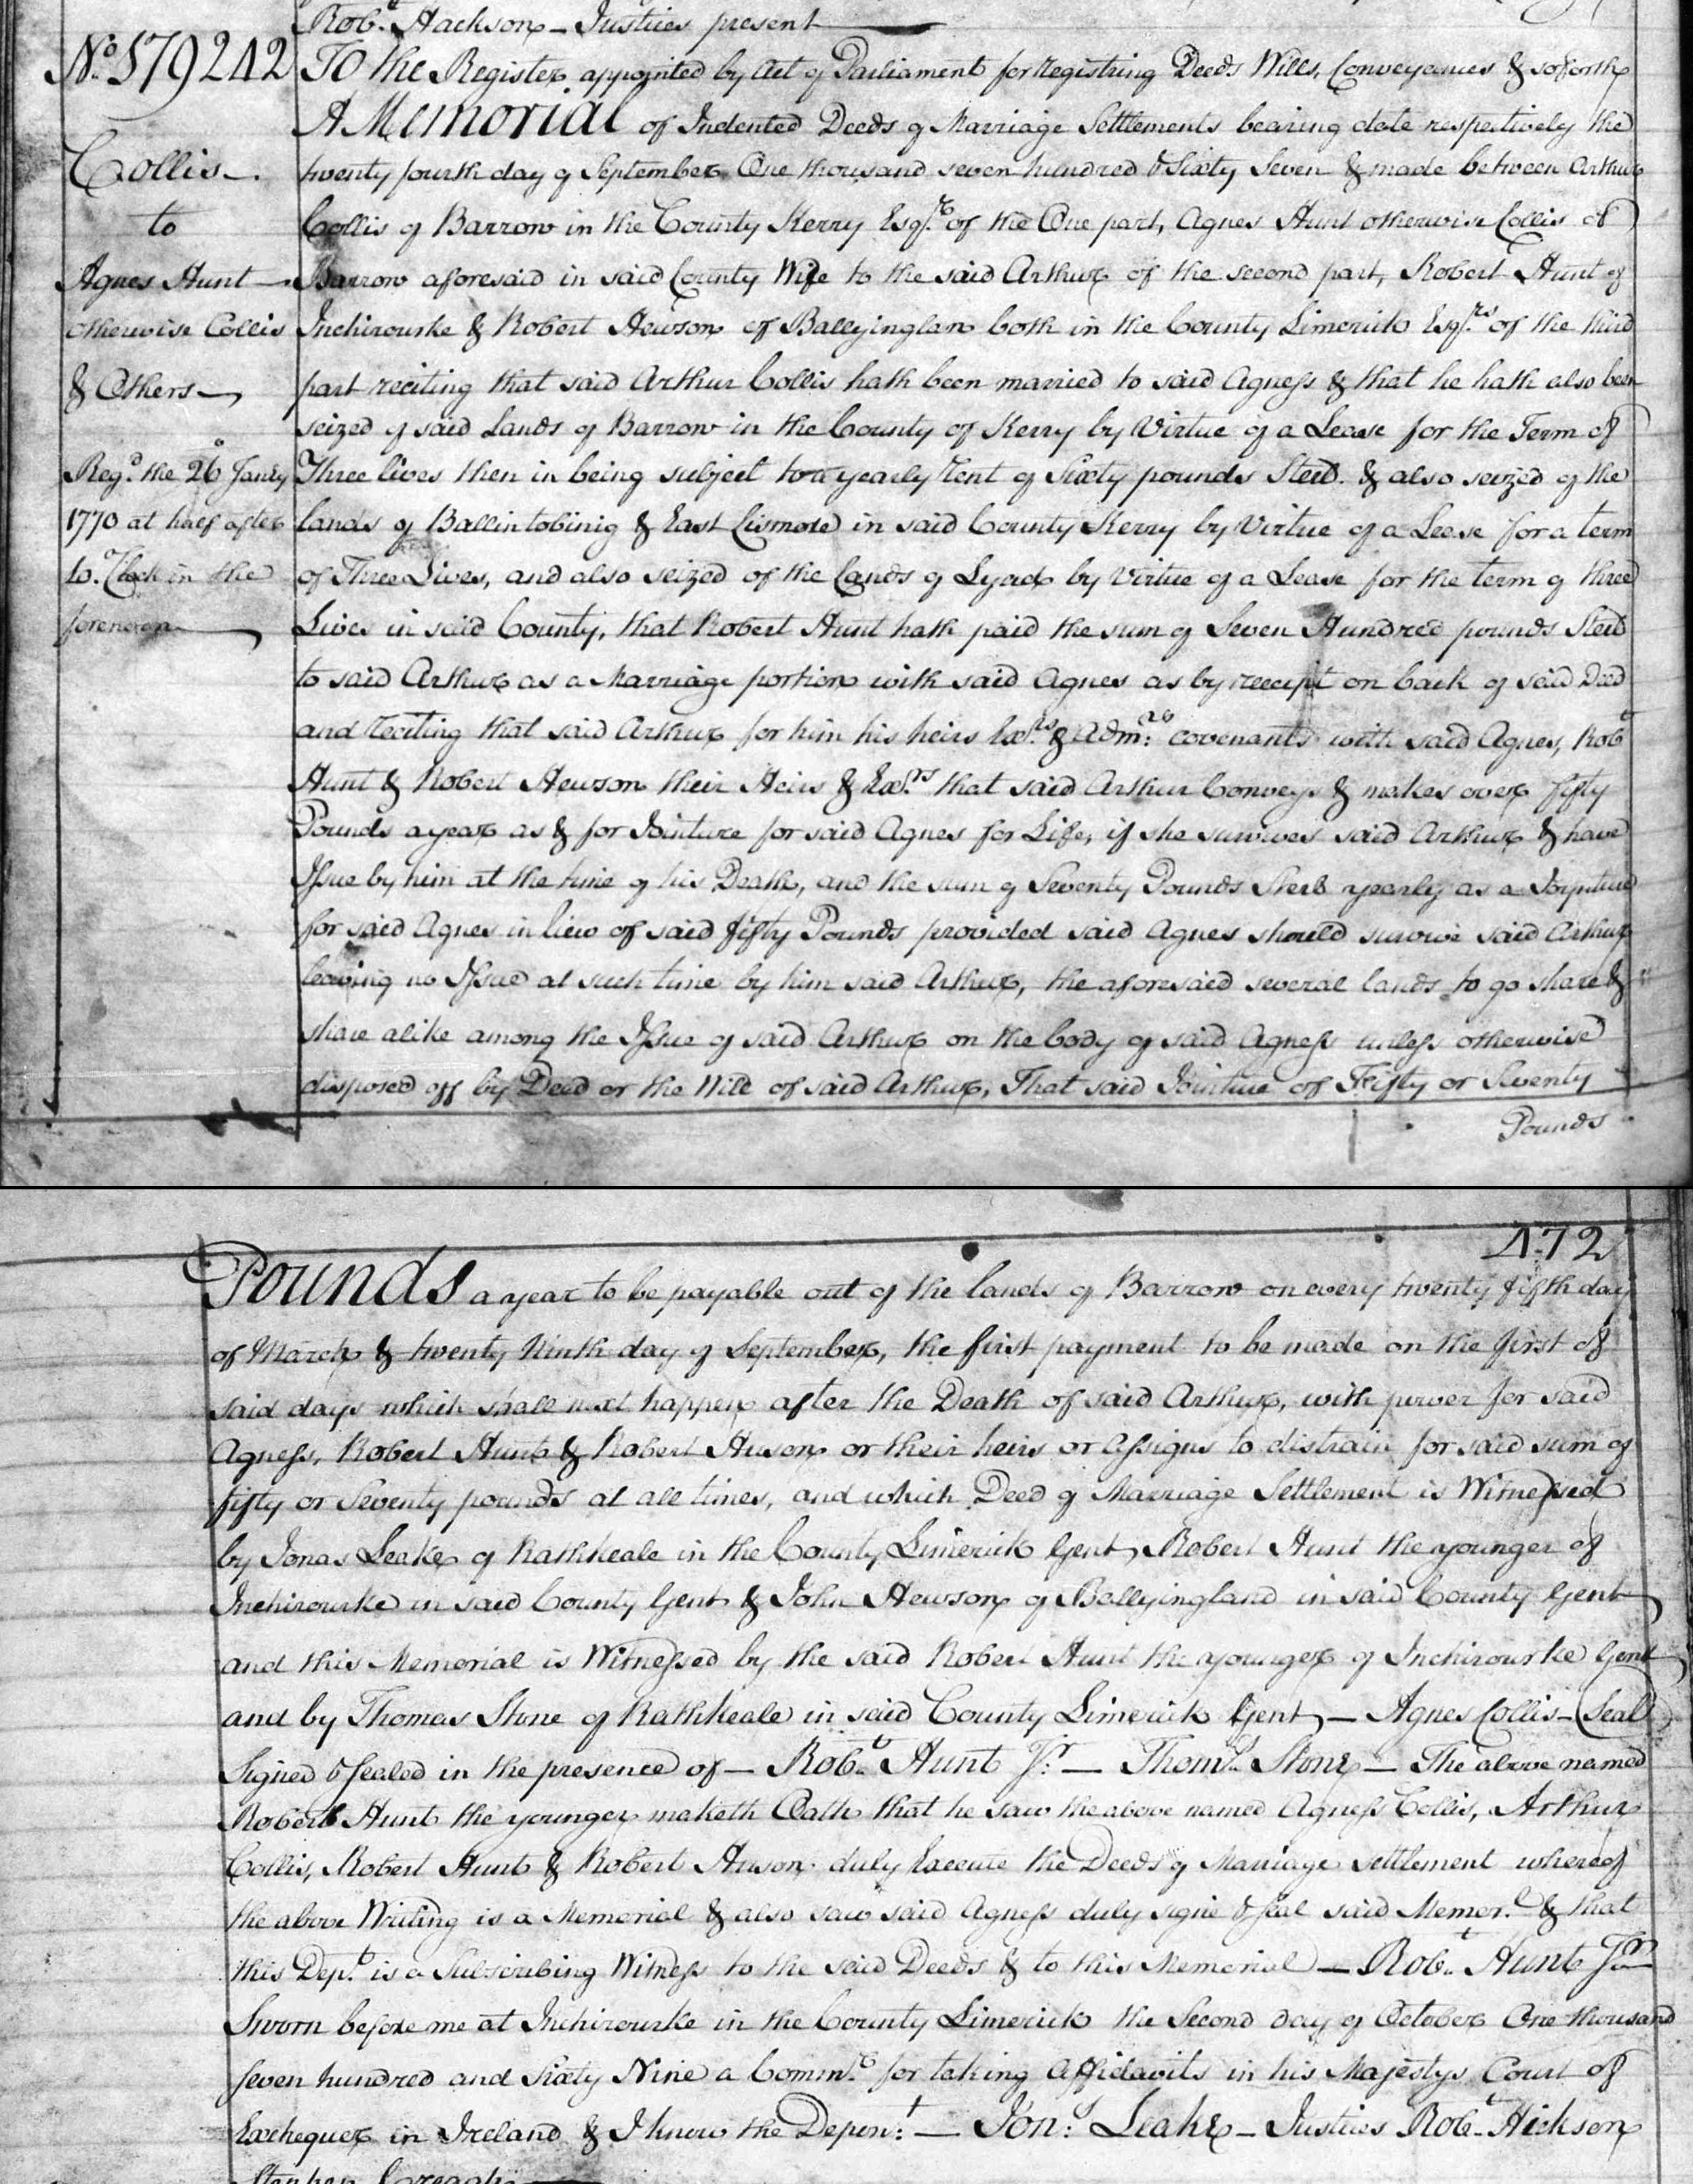 Rob.t Hackson – Justices present
No. 179242
Collis –
to
Agnes Hunt –
otherwise Collis
& Others –
Reg.d the 26 Janry
1770 at half after
10 o'Clock in the
forenoon
To the Register appointed by Act of Parliament for Registring Deeds Wills, Conveyances & so forth
A Memorial of Indented Deeds of Marriage Settlements bearing date respectively the
twenty fourth day of September One thousand seven hundred & Sixty Seven & made between Arthur
Collis of Barrow in the County Kerry Esq.r of the One part, Agnes Hunt otherwise Collis of
Barrow aforesaid in said County Wife to the said Arthur of the second part, Robert Hunt of
Inchirourke & Robert Hewson of Ballyinglan both in the County Limerick Esq.rs of the third
part reciting that said Arthur Collis hath been married to said Agness & that he hath also been
seized of said Lands of Barrow in the County of Kerry by Virtue of a Lease for the Term of
Three lives then in being subject to a yearly rent of Sixty pounds Sterl. & also seized of the
lands of Ballintobinig & East Lismore in said County Kerry by Virtue of a Lease for a term
of Three Lives, and also seized of the Lands of by Virtue of a Lease for the term of three
Lives in said County, that Robert Hunt hath paid the sum of Seven Hundred pounds Sterl
to said Arthur as a Marriage portion with said Agnes as by receipt on back of said Deed
and reciting that said Arthur for him his heirs Ex.rs & Adm.rs covenants with said Agnes, Rob.t
Hunt & Robert Hewson their Heirs & Ex.rs that said Arthur Conveys & makes over fifty
Pounds a year as & for Jointure for said Agnes for Life, if she survives said Arthur & have
Issue by him at the time of his Death, and the sum of Seventy Pounds Sterl yearly as a Joynture
for said Agnes in lieu of said fifty Pounds provided said Agnes should survive said Arthur
leaving no Issue at such time by him said Arthur, the aforesaid several lands to go share &
share alike among the Issue of said Arthur on the body of said Agness unless otherwise
disposed off by Deed or the Will of said Arthur, That said Jointure of Fifty or Seventy
Pounds
472
Pounds a year to be payable out of the lands of Barrow on every twenty fifth day
of March & twenty Ninth day of September, the first payment to be made on the first of
said days which shall next happen after the Death of said Arthur, with power for said
Agness, Robert Hunt & Robert Huson or their heirs or Assigns to distrain for said sum of
fifty or Seventy pounds at all times, and which Deed of Marriage Settlement is Witnessed
by Jonas Leake of Rathkeale in the County Limerick Gent, Robert Hunt the younger of
Inchirourke in said County Gent & John Hewson of Ballyingland in said County Gent
and this Memorial is Witnessed by the said Robert Hunt the younger of Inchirourke Gent
and by Thomas Stone of Rathkeale in said County Limerick Gent, – Agnes Collis – (Seal)
Signed & Sealed in the presence of – Rob.t Hunt J.r – Thom.s Stone – The above named
Robert Hunt the younger maketh Oath that he saw the above named Agness Collis, Arthur
Collis, Robert Hunt & Robert Huson duly Execute the Deeds of Marriage Settlement whereof
the above Writing is a Memorial & also saw said Agness duly signe & seal said Memor.l & that
this Dep.t is a Subscribing Witness to the said Deeds & to this Memorial – Rob.t Hunt J.r
Sworn before me at Inchirourke in the County Limerick the Second day of October One thousand
seven hundred and Sixty Nine a Comm.r for taking Affidavits in his Majestys Court of
Exchequer in Ireland & I know the Depon.t – Jon.s Leake – Justices Rob.t Hickson
Stephen Creagh